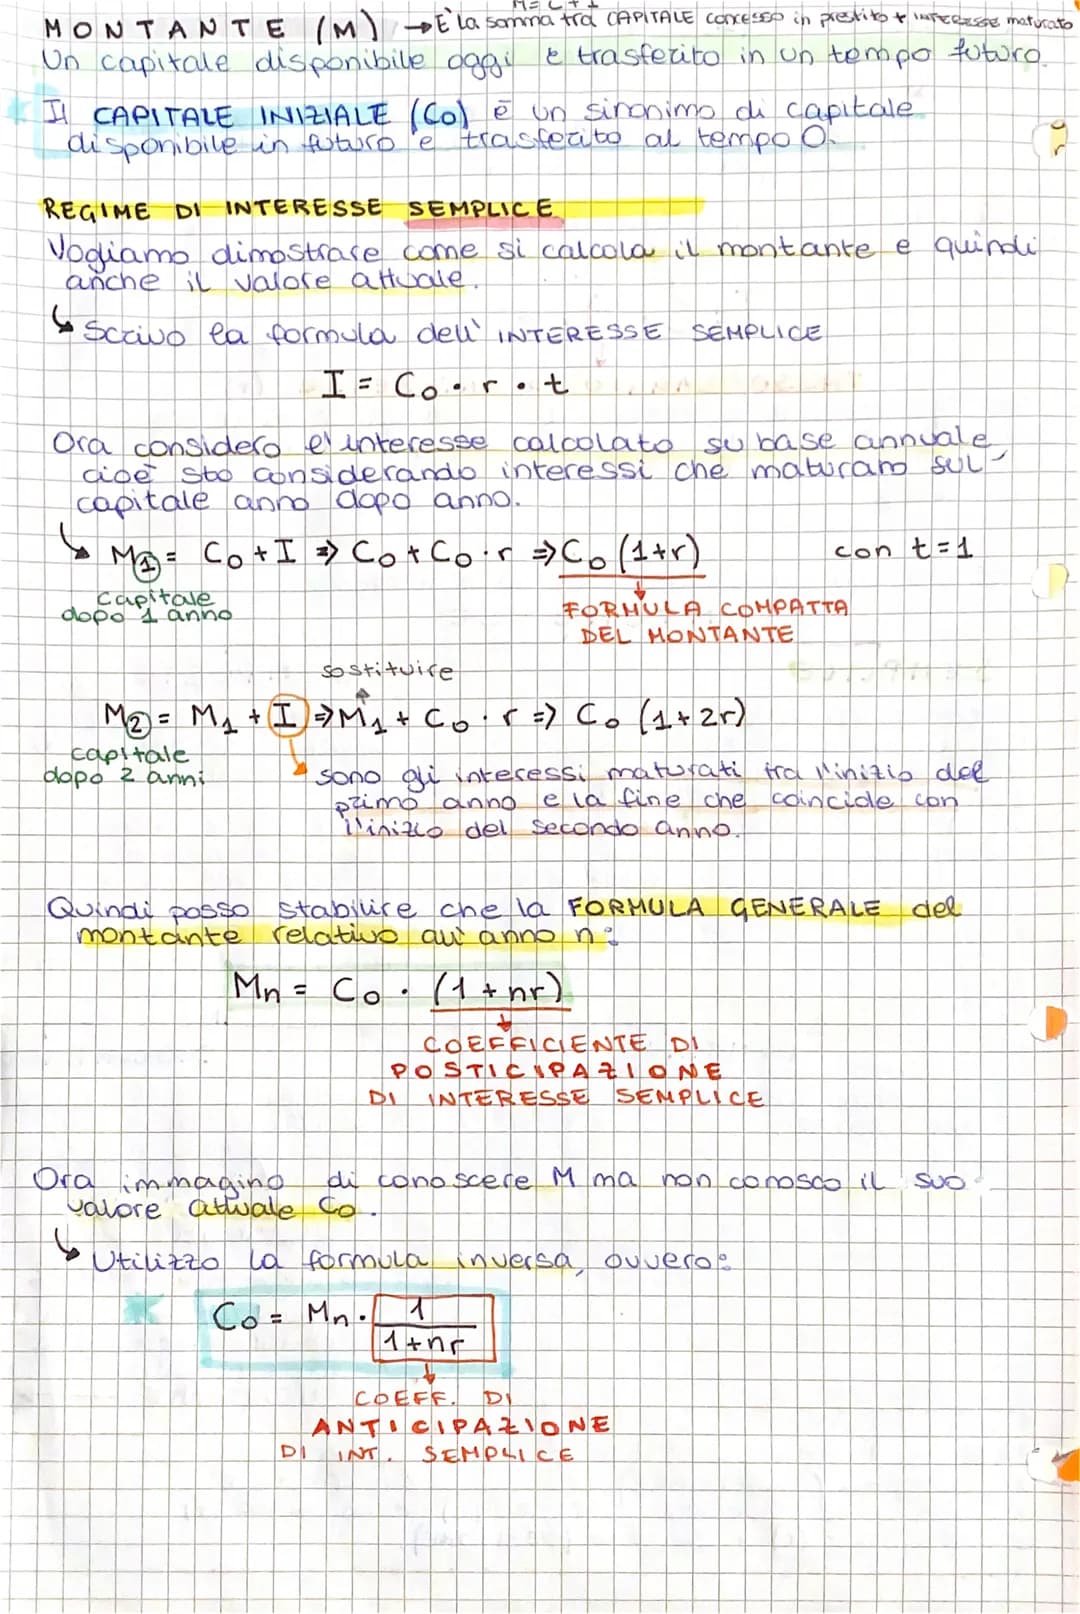 M = C + I
MONTANTE (M) → È la somma tra CAPITALE concesso in prestito + INTERESSE maturato
Un capitale disponibile oggi è trasferito in un tempo futuro.
Il CAPITALE INIZIALE (Co) è un sinonimo di capitale
disponibile in futuro e trasferito al tempo 0.
REGIME DI INTERESSE SEMPLICE
Vogliamo dimostrare come si calcola il montante e quindi
anche il valore attuale.
↳ Scrivo la formula dell' INTERESSE SEMPLICE
I = Co · r · t
Ora considero l'interesse calcolato su base annuale
cioè sto considerando interessi che maturano sul
capitale anno dopo anno.
↳ M1 = Co + I ⇒ Co + Co · r ⇒ Co (1+r) con t = 1
capitale
dopo 1 anno
FORMULA COMPATTA
DEL MONTANTE
sostituire
M2 = M1 + I ⇒ M1 + Co · r ⇒ Co (1+2r)
capitale
dopo 2 anni
sono gli interessi maturati tra l'inizio del
primo anno e la fine che coincide con
l'inizio del secondo anno.
Quindi posso stabilire che la FORMULA GENERALE del
montante relativo all'anno n:
Mn = Co · (1 + nr)
COEFFICIENTE DI
POSTICIPAZIONE
DI INTERESSE SEMPLICE
Ora immagino di conoscere M ma non conosco il suo
valore attuale Co.
↳ Utilizzo la formula inversa, ovvero:
Co = Mn · 1
1+nr
COEFF. DI
ANTICIPAZIONE
DI INT. SEMPLICE